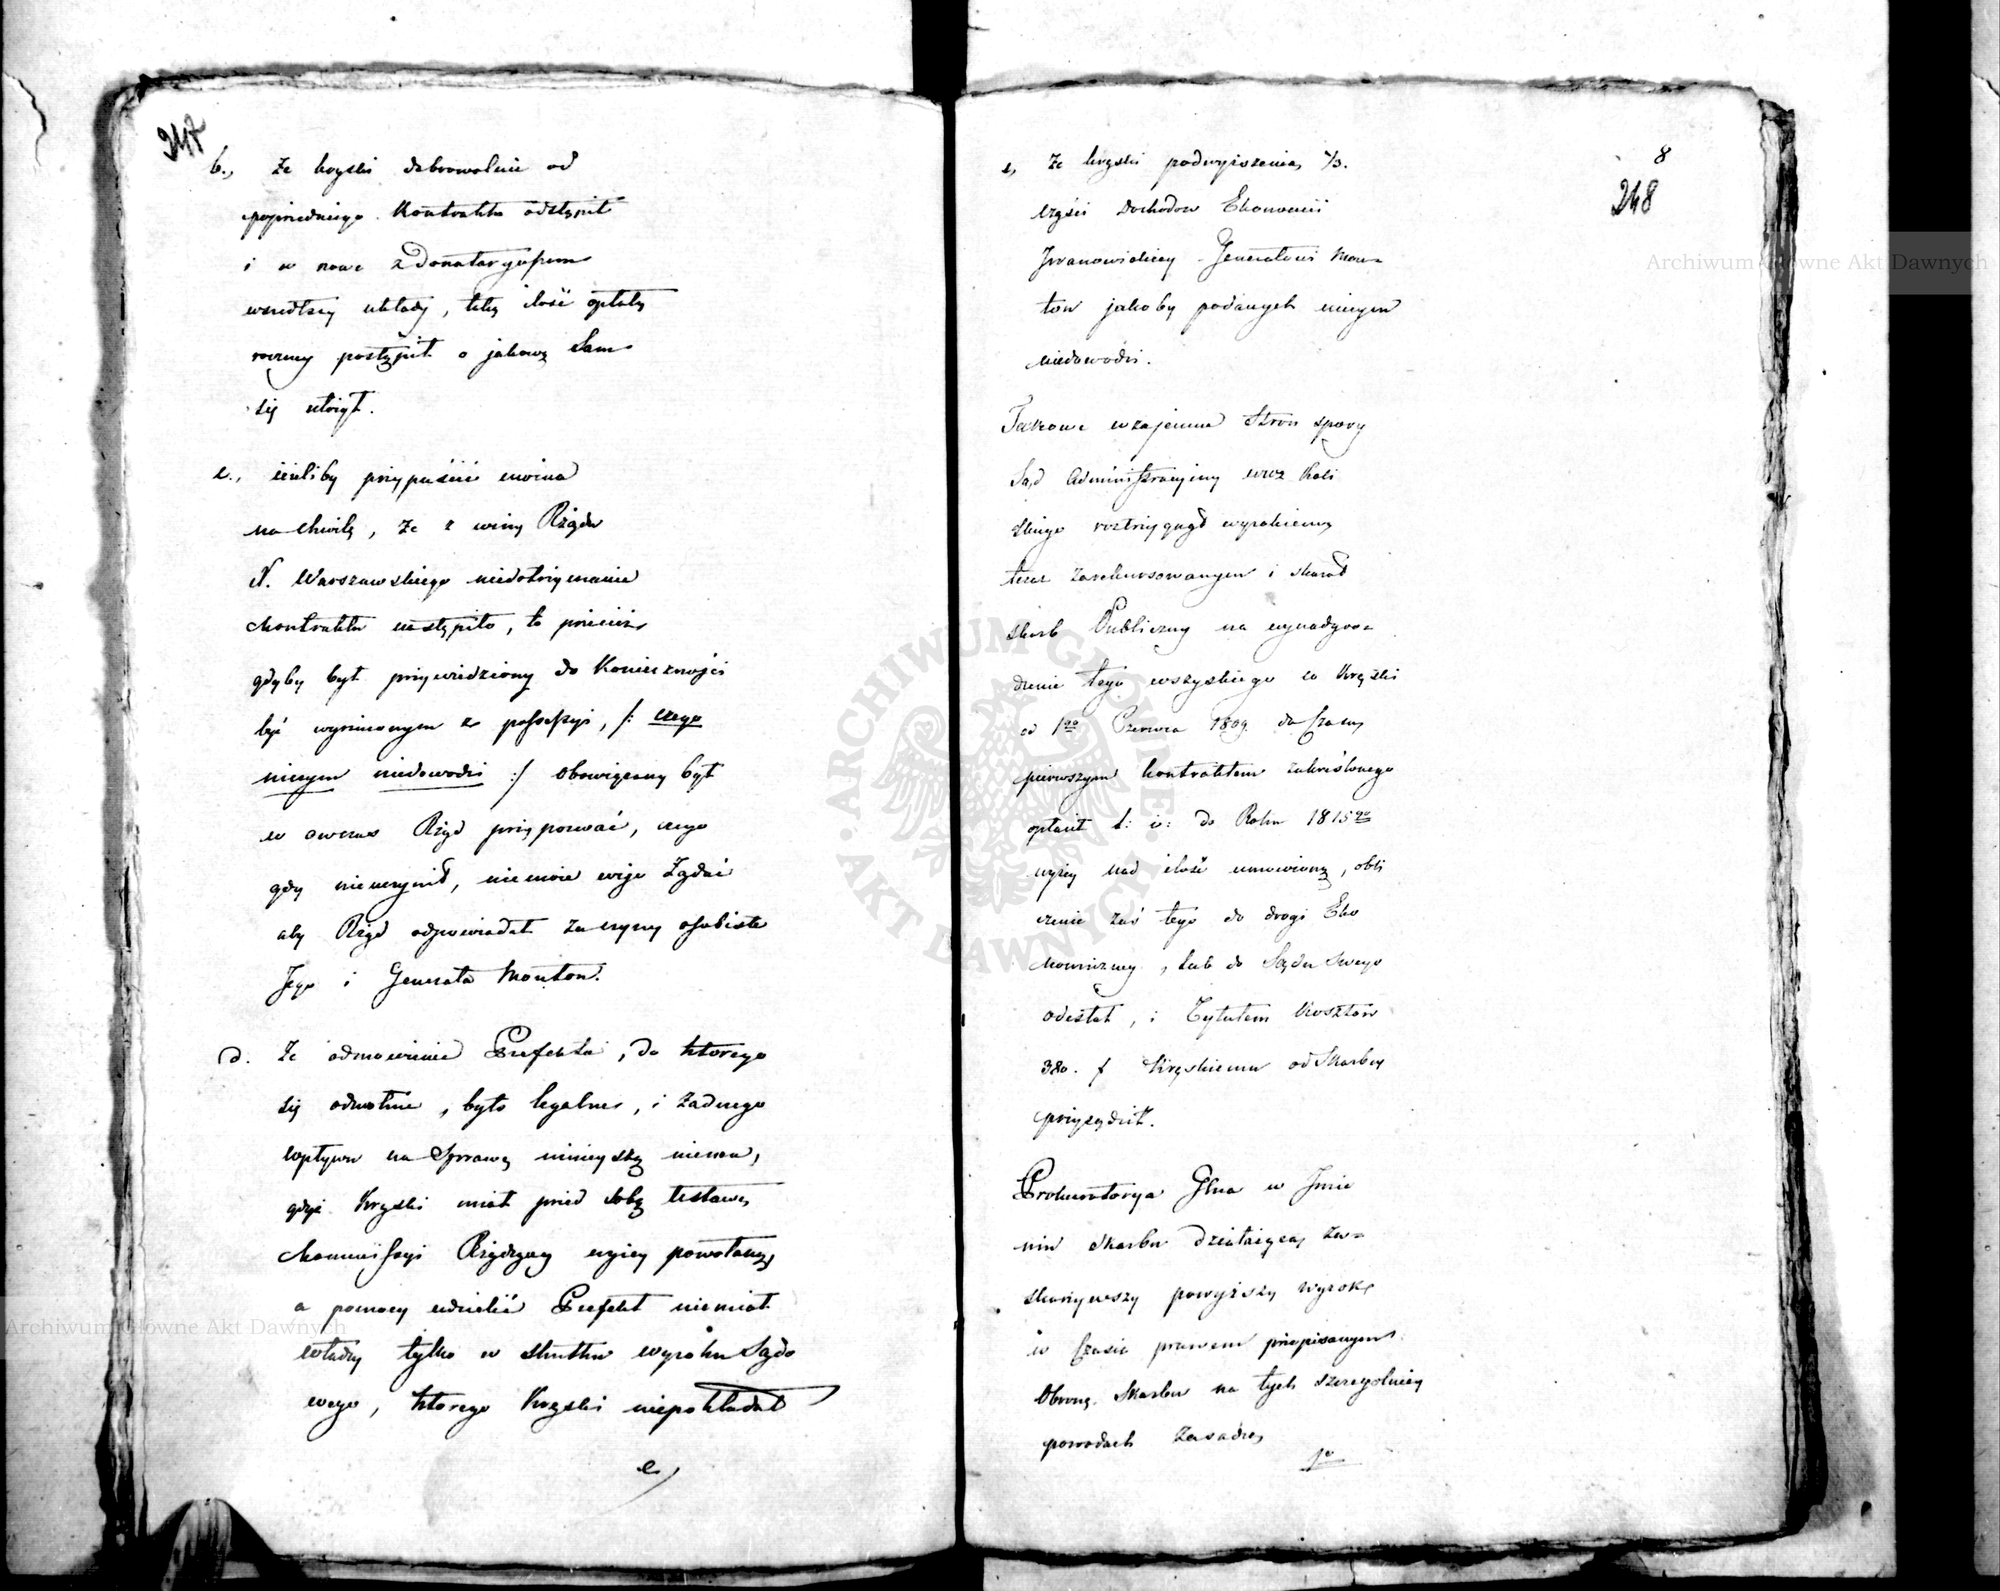 247
b., że Kręski dobrowolnie od
poprzedniego Kontraktu odstąpił
i w nowe z Donataryuszem
wszedłszy układy, taką ilość opłaty
roczney postąpił o jakową Sam
się ułożył.
c., ieżeliby przypuścić można
na chwilę, że z winy Rządu
X. Warszawskiego niedotrzymanie
Kontraktu nastąpiło, to przecież
gdyby był przywiedziony do Konieczności
być wyrzuconym z possessyi, /: czego
niczym niedowodzi :/ obowiązany był
w owczas Rząd przypozwać, czego
gdy nieuczynił, niemoże więc Żądać
aby Rząd odpowiadał za czyny osobiste
Jego i Generała Mouton.
d. Że odmowienie Prefekta, do którego
się odwołuie, było legalne, i żadnego
wpływu na Sprawę ninieyszą niema,
gdyż Kręski miał przed sobą ustawę
Kommissyi Rządzącey wyżey powołaną,
a pomocy udzielić Prefekt niemiał
władzy tylko w skutku wyroku Sądo
wego, którego Kręski niepokładał
e,
8
248
e, Że Kręski podwyższenia 1/3.
części Dochodów Ekonomii
Iwanowickiey Generałowi Mou=
ton jakoby podanych niczym
niedowodzi.
Takowe wzajemne Stron spory
Sąd Administracyiny woiew. Kali
skiego roztrzygnął wyrokiem
teraz zarekursowanym i skazał
Skarb Publiczny na wynadgro=
dzenie tego wszystkiego co Kręski
od 1go Czerwca 1809. do Czasu
pierwszym kontraktem zakreślonego
opłacił t: i: do Roku 1815go
wyżey nad ilość umowioną, obli
czenie zaś tego do drogi Eko
nomiczney, lub do Sądu swego
odesłał, i Tytułem Kosztów
380. f Kręskiemu od Skarbu
przysądził.
Prokuratorya Glna w Imie
niu Skarbu działaiąca, za=
skarżywszy powyższy wyrok
w Czasie prawem przepisanym
Obronę Skarbu na tych szczegolniey
powodach zasadza,
1o
Archiwum Główne Akt Dawnych
Archiwum Główne Akt Dawnych
ARCHIWUM GŁÓWNE AKT DAWNYCH